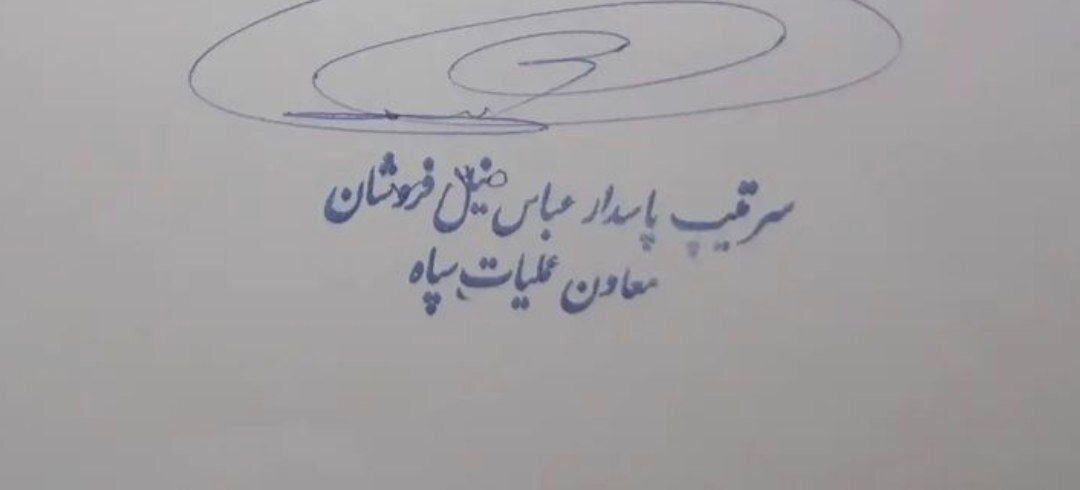 سرتیپ پاسدار عباس نیل فروشان
معاون عملیات سپاه